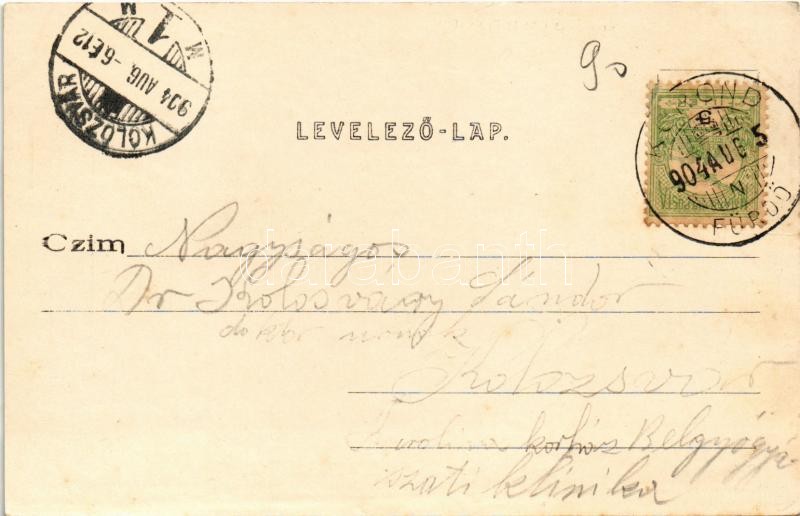 KOLOZSVÁR
904 AUG. -6 E12
M 1 M
90
LEVELEZŐ-LAP.
KOROND
904 AUG 5
N
FÜRDŐ
Czim Nagyságos
Dr Kolosváry Sándor
doktor urnak
Kolozsvár
Karolina korház Belgyógyá-
szati klinika
darabanth